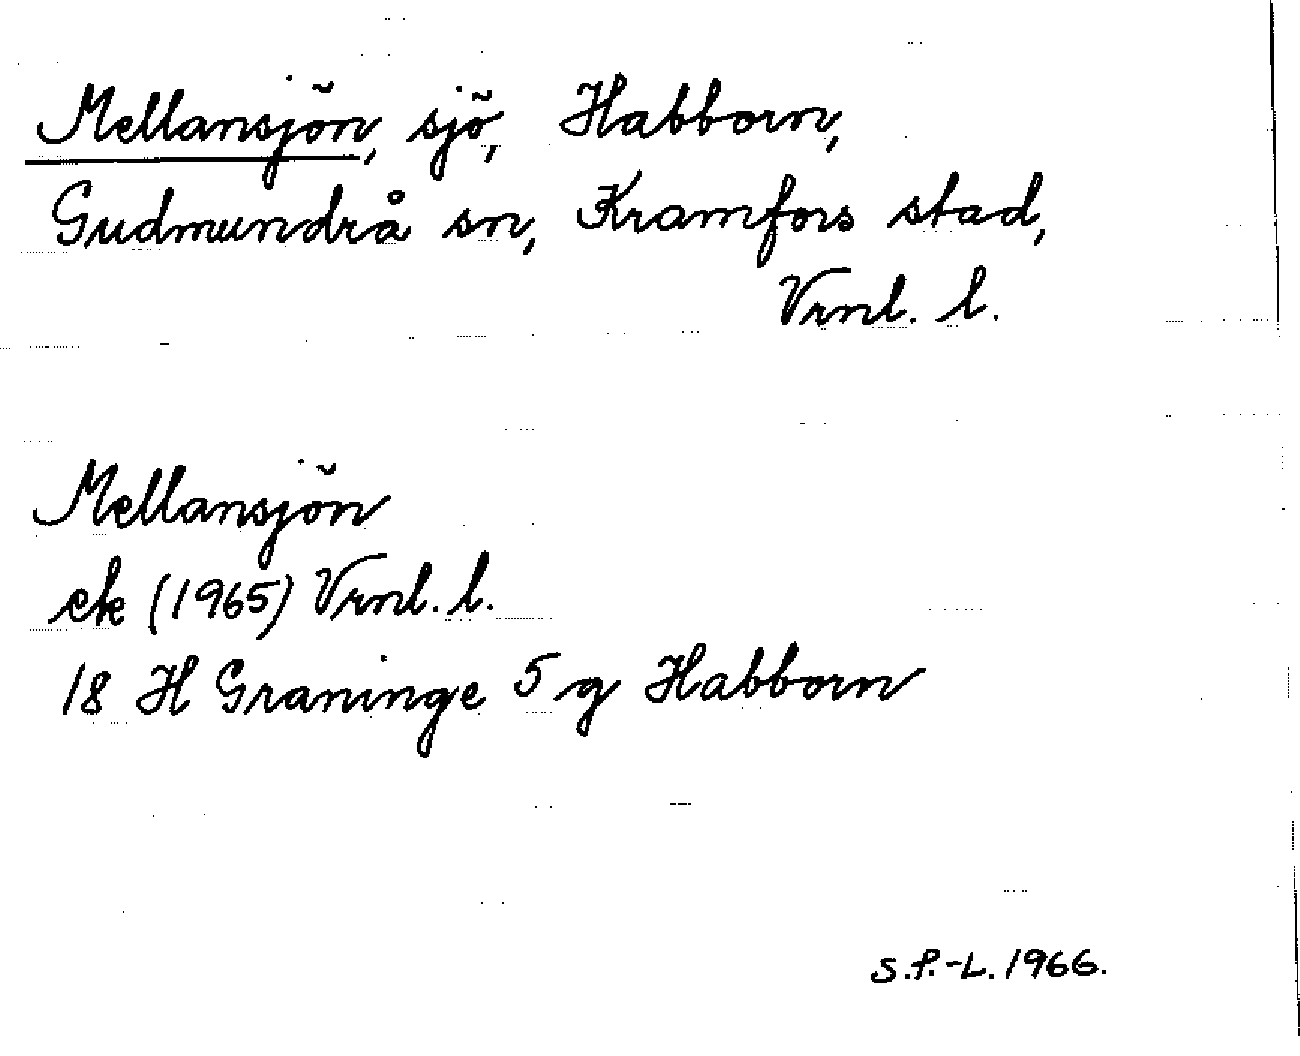 Mellansjön, sjö, Habborn,
Gudmundrå sn, Kramfors stad,
Vrnl. l.
Mellansjön
ek (1965) Vrnl. l.
18 H Graninge 5 g Habborn
S.P.-L. 1966.